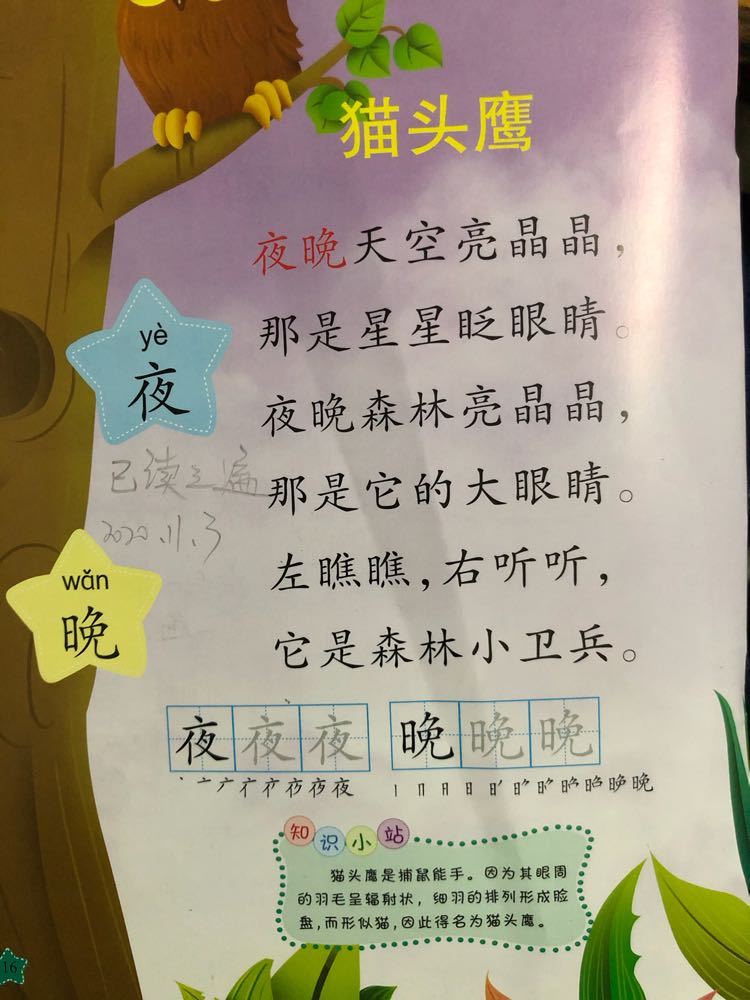 猫头鹰
夜晚天空亮晶晶，
那是星星眨眼睛。
yè
夜
夜晚森林亮晶晶，
已读三遍
那是它的大眼睛。
2020.11.3
左瞧瞧，右听听，
wǎn
晚
它是森林小卫兵。
夜夜夜 晚晚晚
知识小站
猫头鹰是捕鼠能手。因为其眼周
的羽毛呈辐射状，细羽的排列形成脸
盘，而形似猫，因此得名为猫头鹰。
16